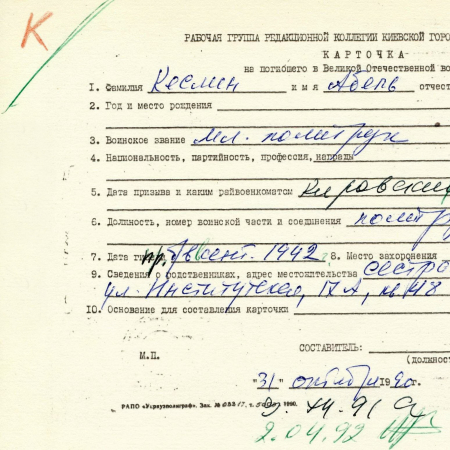 К
РАБОЧАЯ ГРУППА РЕДАКЦИОННОЙ КОЛЛЕГИИ КИЕВСКОЙ ГОРО
КАРТОЧКА
на погибшего в Великой Отечественной во
1. Фамилия Космин имя Абель отчест
2. Год и место рождения
3. Воинское звание мл. политрук
4. Национальность, партийность, профессия, награды
5. Дата призыва и каким райвоенкоматом Кировский
6. Должность, номер воинской части и соединения политр
7. Дата ги в сент. 1942 8. Место захоронения
9. Сведения о родственниках, адрес местожительства сестра
ул. Институтская, 17А, кв 48
10. Основание для составления карточки
СОСТАВИТЕЛЬ:
М.П. (должнос
"31" октября 1990г.
РАПО «Укрвузполиграф». Зак. № т. 5000 1990.
2.04.92